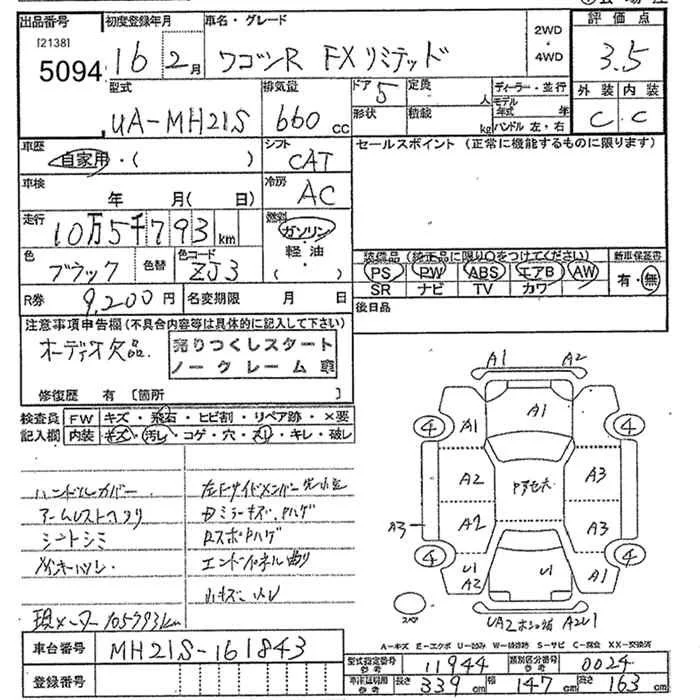 出品番号 初度登録年月 車名・グレード 評価点
[2138]
5094 16 2月 ワゴンR FXリミテッド 2WD・4WD 3.5
型式 排気量 ドア 5 定員 人 ディーラー・並行 外装 内装
UA-MH21S 660cc 形状 積載 kg モデル年式 年 ハンドル 左・右 C C
車歴 シフト セールスポイント (正常に機能するものに限ります)
自家用・( ) CAT
車検 年 月(日) 冷房 AC
走行 10万5千793km 燃料 ガソリン・軽油 ( )
色 ブラック 色替 色コード ZJ3
装備品 (純正品に限り○をつけてください) 新車保証書
PS PW ABS エアB AW 有・無
SR ナビ TV カワ
R券 9,200円 名変期限 月 日 後日品
注意事項申告欄(不具合内容等は具体的に記入して下さい)
オーディオ欠品 売りつくしスタート
ノークレーム車
修復歴 有 [箇所 ]
検査員記入欄 FW キズ・飛石・ヒビ割・リペア跡・×要
内装 キズ・汚レ・コゲ・穴・スレ・キレ・破レ
ハンドルカバー
シートシミ
現メーター105793km
車台番号 MH21S-161843
登録番号
A1 A2
④ A1 A1 ④
A2 A3
A3 A2 A3
④ U1 A2 U1 A1 ④
スペア
A-キズ E-エクボ U-凹み W-補修跡 S-サビ C-腐食 XX-交換済
型式指定番号 参考 11944 類別区分番号 参考 0024
長さ 339cm 幅 147cm 高さ 163cm